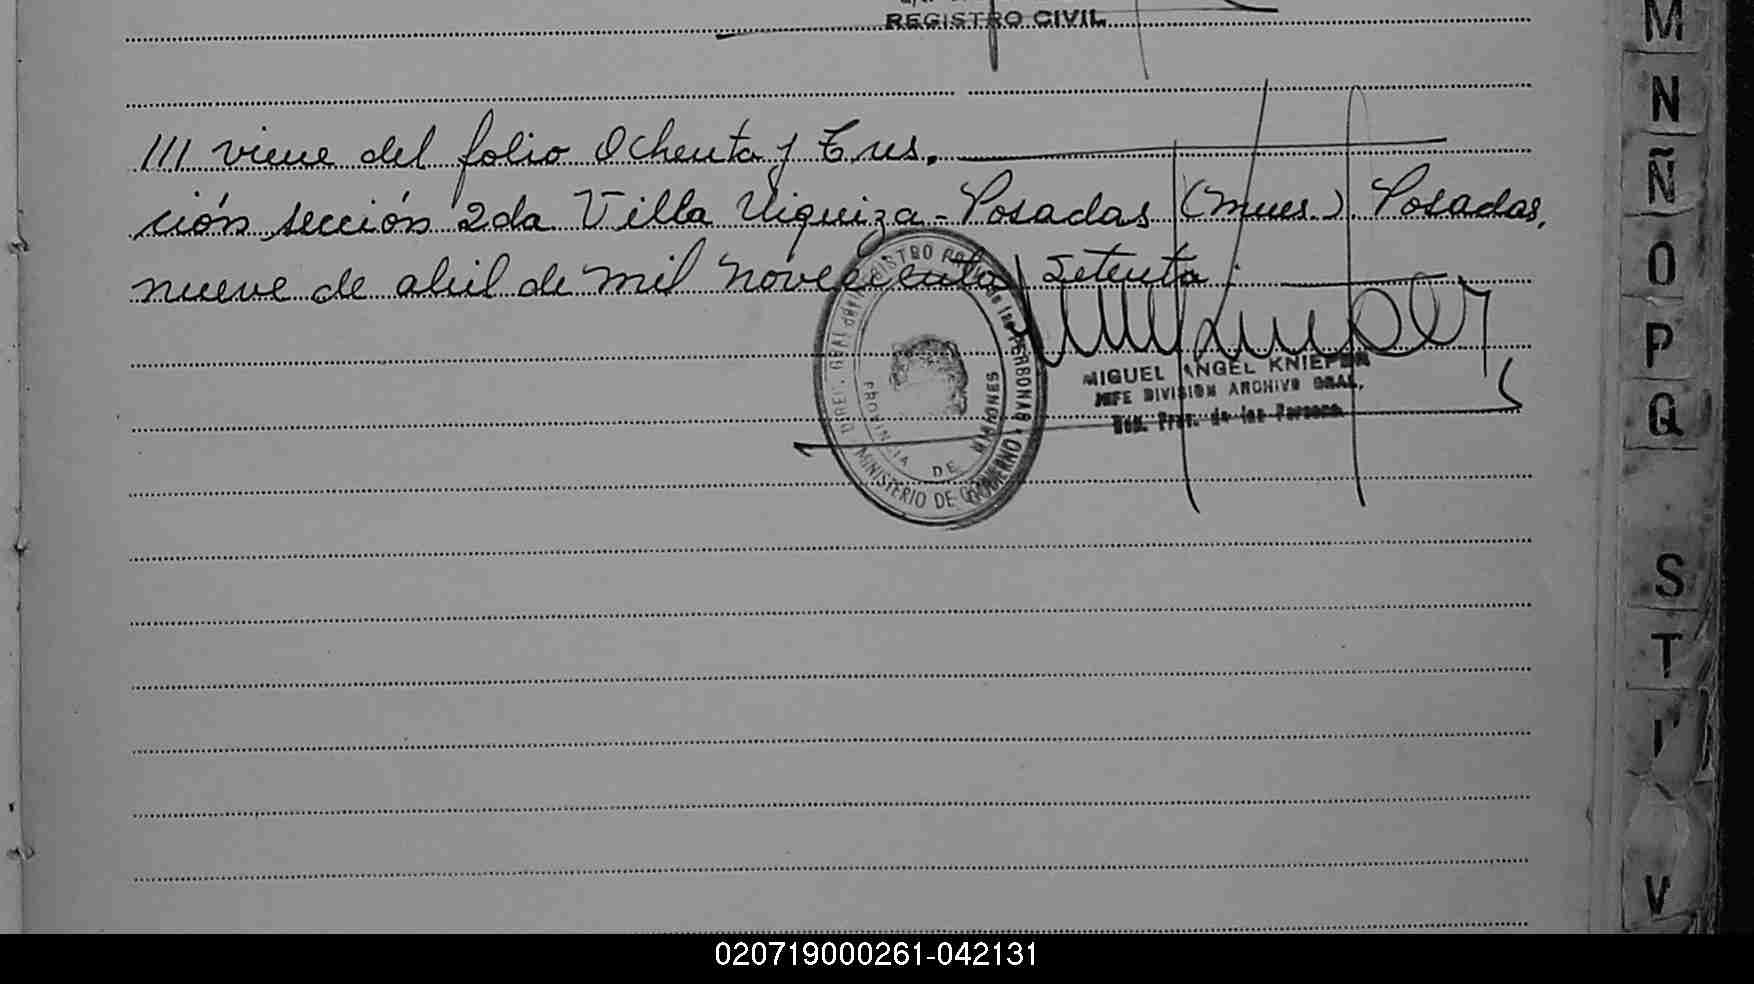 REGISTRO CIVIL
/// viene del folio Ochenta y Tres.
ción sección 2da Villa Urquiza - Posadas (Mnes.). Posadas,
nueve de abril de mil novecientos setenta.
DIREC. GRAL del REGISTRO PROV. de las PERSONAS
PROVINCIA DE MISIONES
MINISTERIO DE GOBIERNO
MIGUEL ANGEL KNIEPER
JEFE DIVISION ARCHIVO GRAL.
Prov. de las Person.
M
N
Ñ
O
P
Q
S
T
V
020719000261-042131